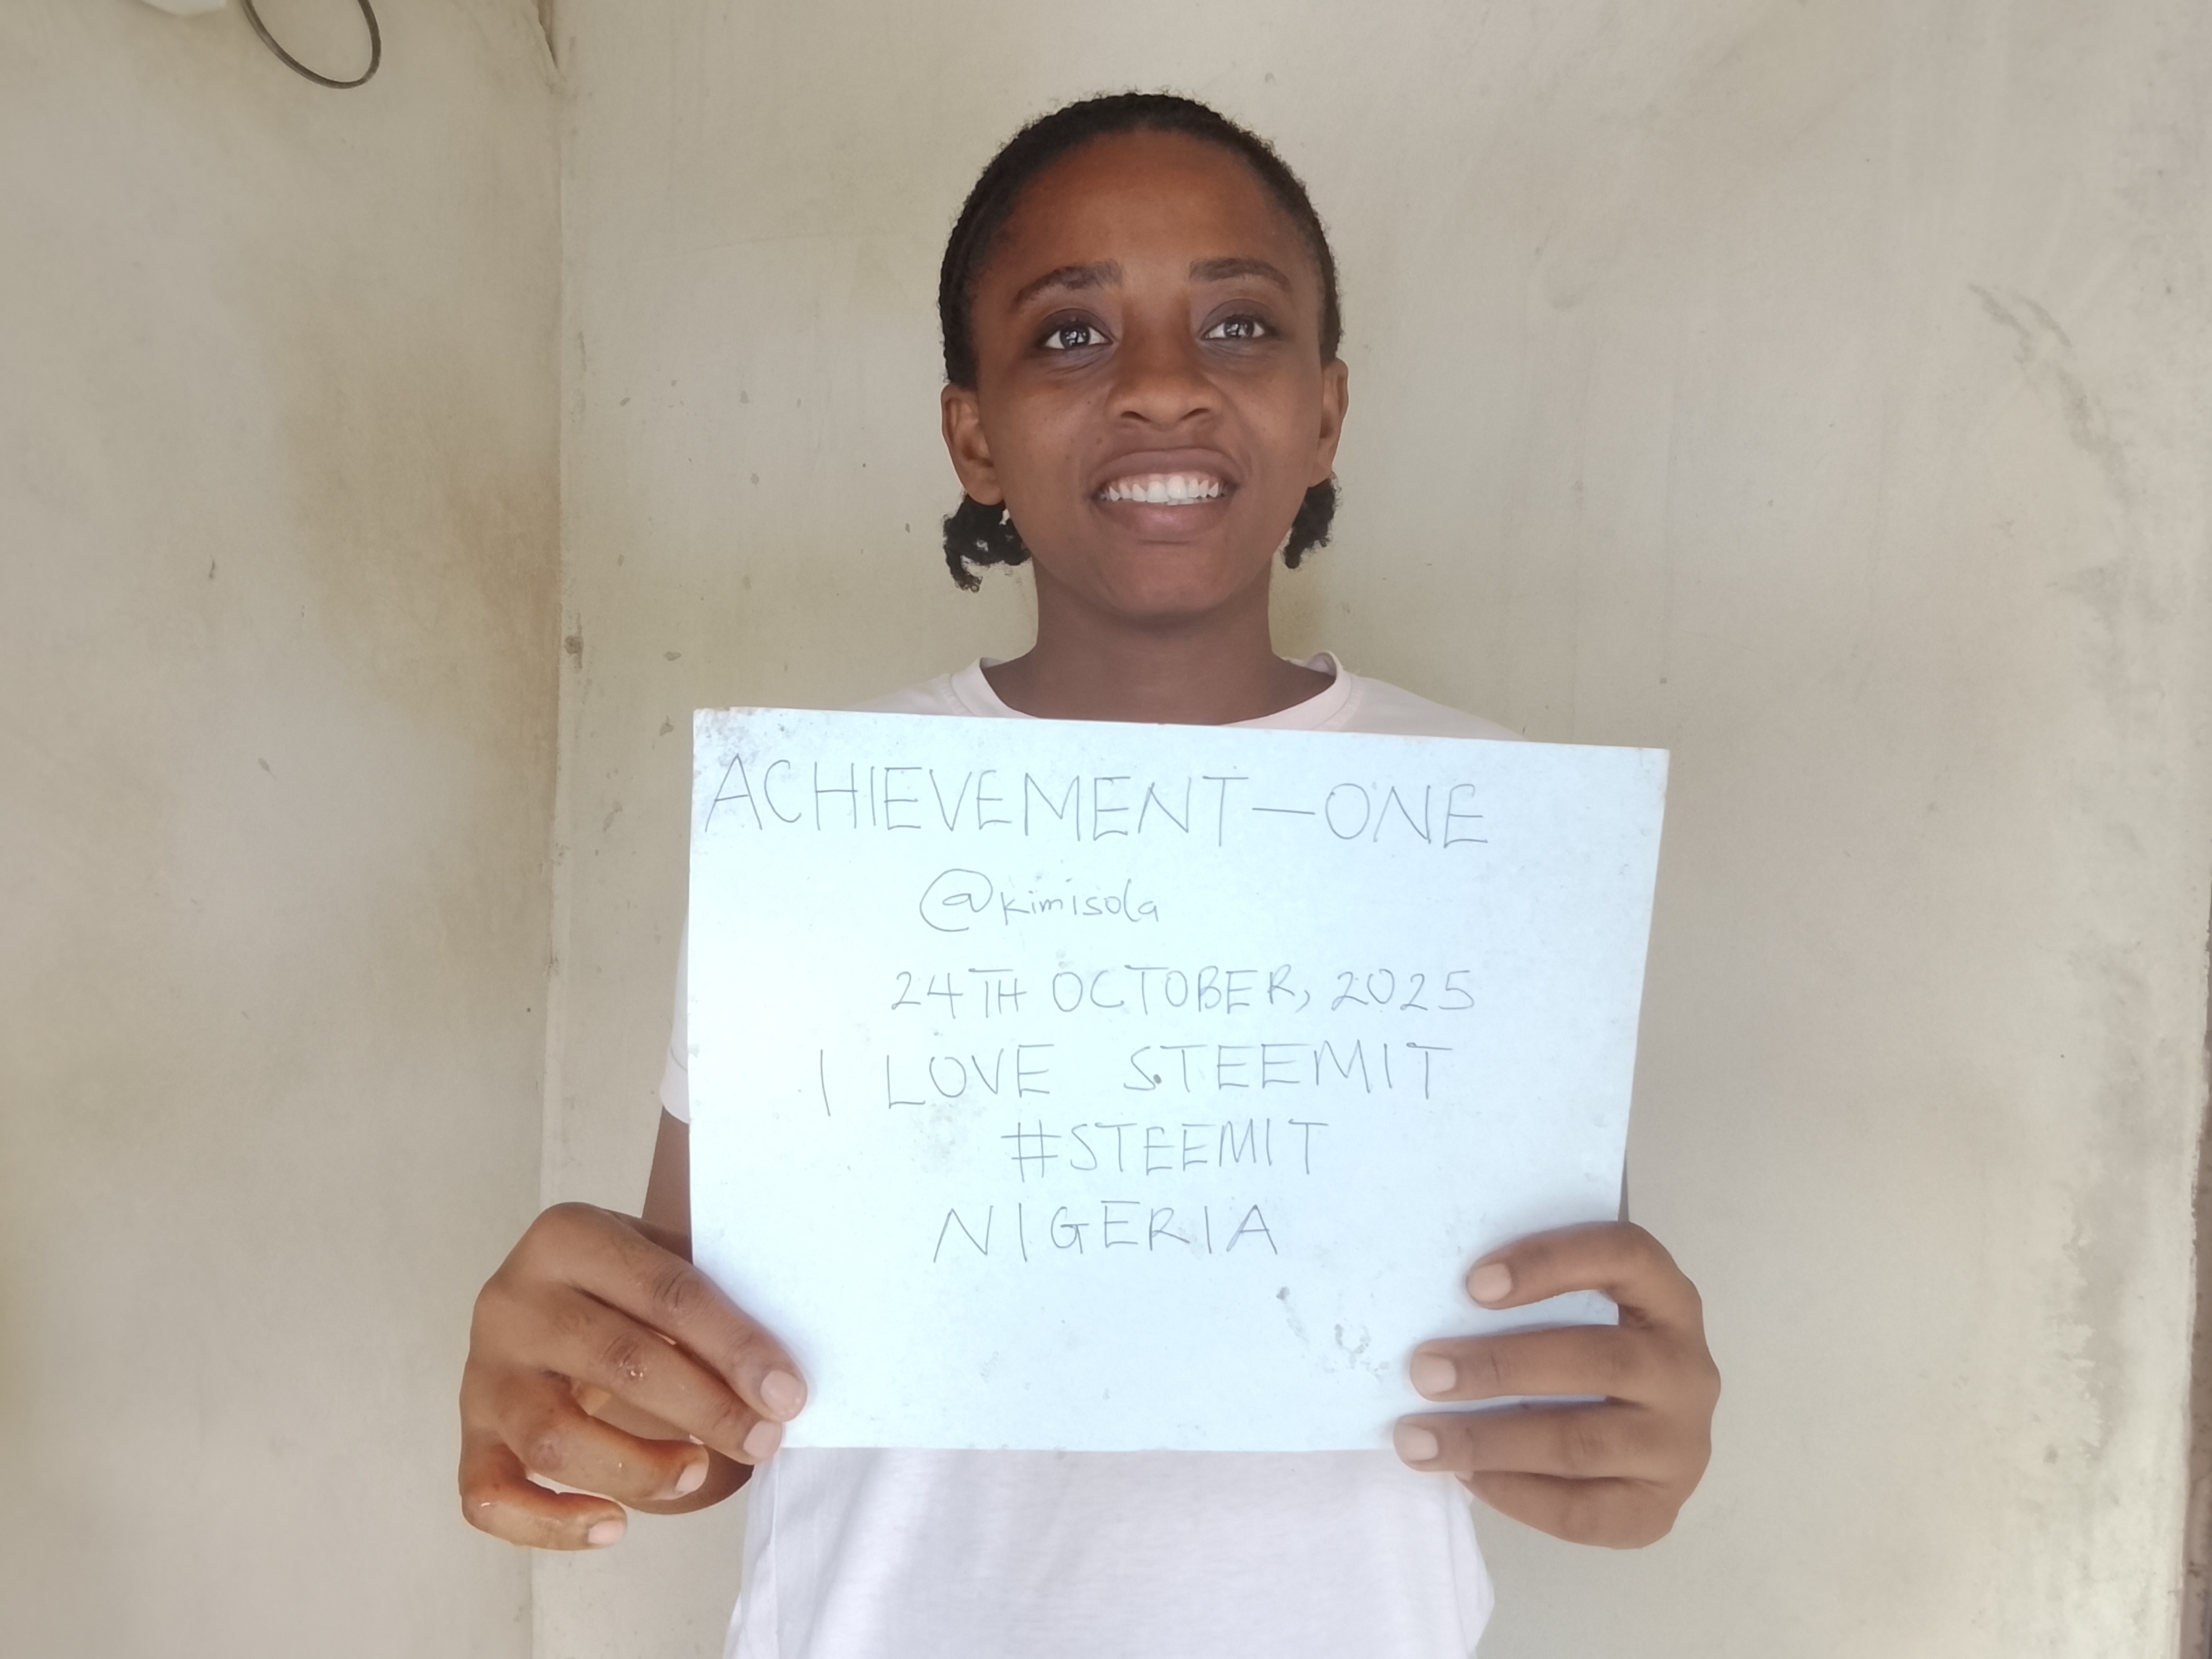 ACHIEVEMENT-ONE
@kimisola
24TH OCTOBER, 2025
I LOVE STEEMIT
#STEEMIT
NIGERIA